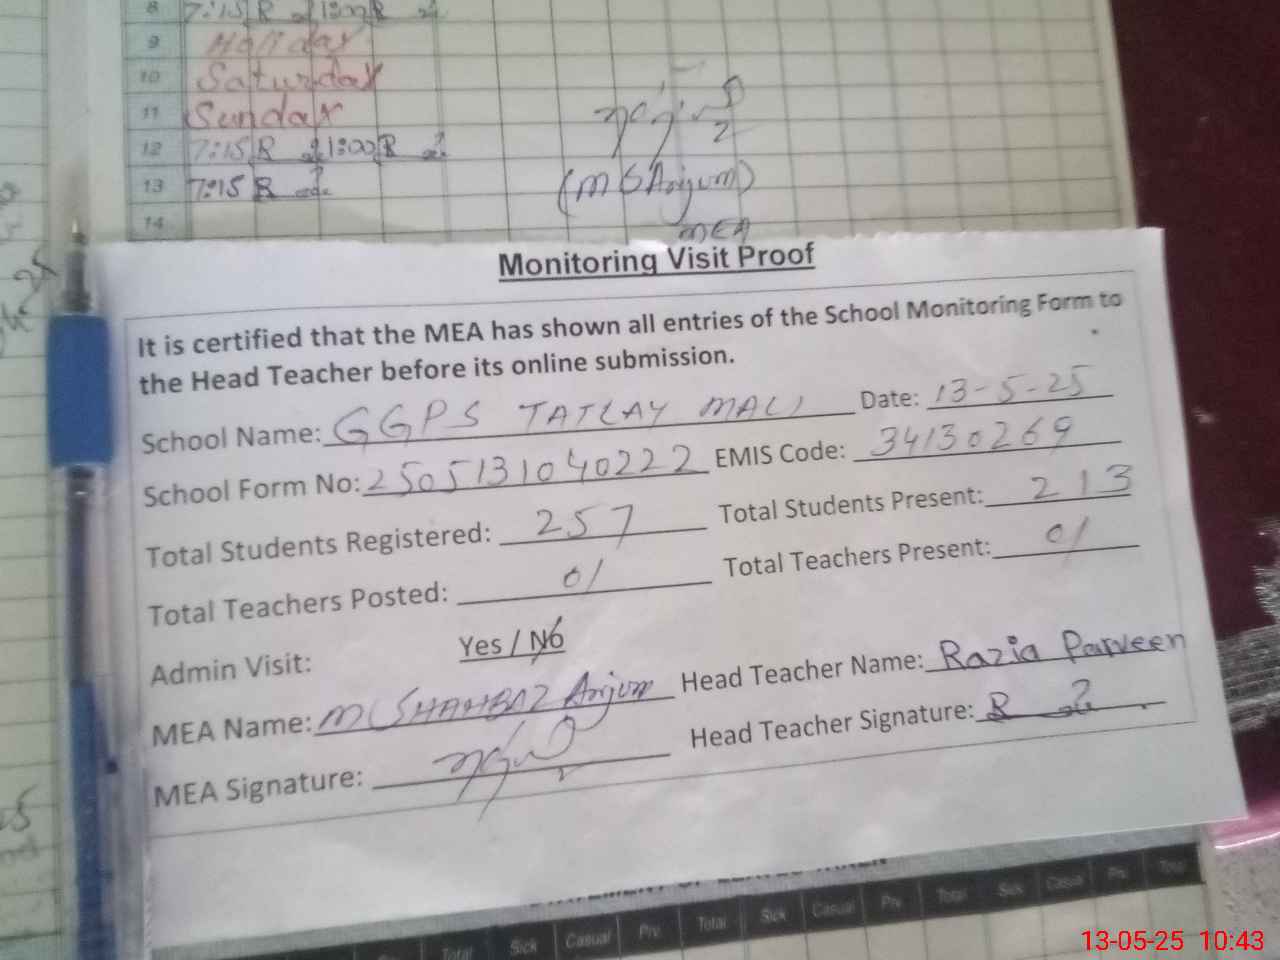 8 7:15 R 1:00 R
9 Holiday
10 Saturday
11 Sunday
12 7:15 R 1:00 R
13 7:15 R
14
(M S Anjum)
MEA
Monitoring Visit Proof
It is certified that the MEA has shown all entries of the School Monitoring Form to
the Head Teacher before its online submission.
School Name: GGPS TATLAY MALI Date: 13-5-25
School Form No: 2505131040222 EMIS Code: 34130269
Total Students Registered: 257 Total Students Present: 213
Total Teachers Posted: 01 Total Teachers Present: 01
Admin Visit: Yes / No
MEA Name: M SHAHBAZ Anjum Head Teacher Name: Razia Parveen
MEA Signature: Head Teacher Signature: R
Total Sick Casual Prv. Total Sick Casual Prv. Total Sick Casual Prv. Total
13-05-25 10:43